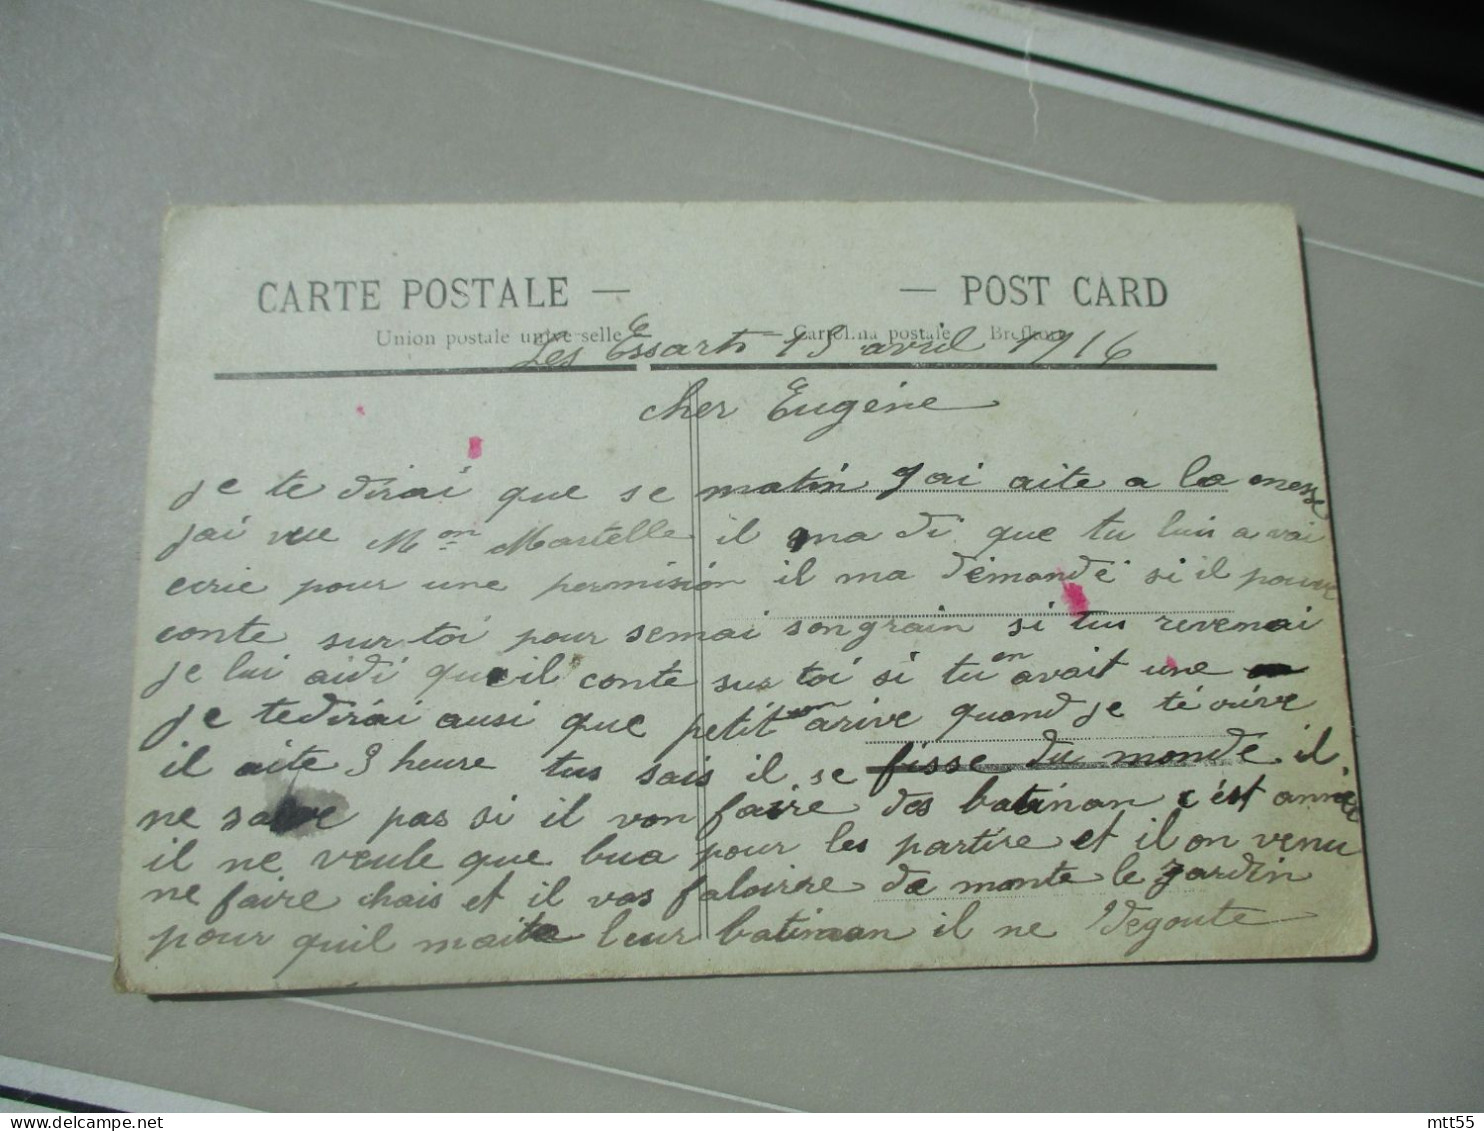 CARTE POSTALE — — POST CARD
Union postale universelle — Cartolina postale Brefkort
Les Essarts 15 avril 1916
cher Eugène
je te dirai que se matin J'ai aite a la messe
jai vue Mon Martelle il ma di que tu luis avai
ecrie pour une permision il ma demandé si il pouve
conte sur toi pour semai son grain si tus revenai
je lui aidi queil conte sus toi si tu en avait une
je tedirai ausi que petit arive quand je té crive
il aite 3 heure tus sais il se fisse du monde il
ne save pas si il von faire des batiman c'est année
il ne veule que bua pour les partire et il on venu
ne faire chais et il vas faloire de monte le jardin
pour quil maite leur batiman il ne degoute
mtt55